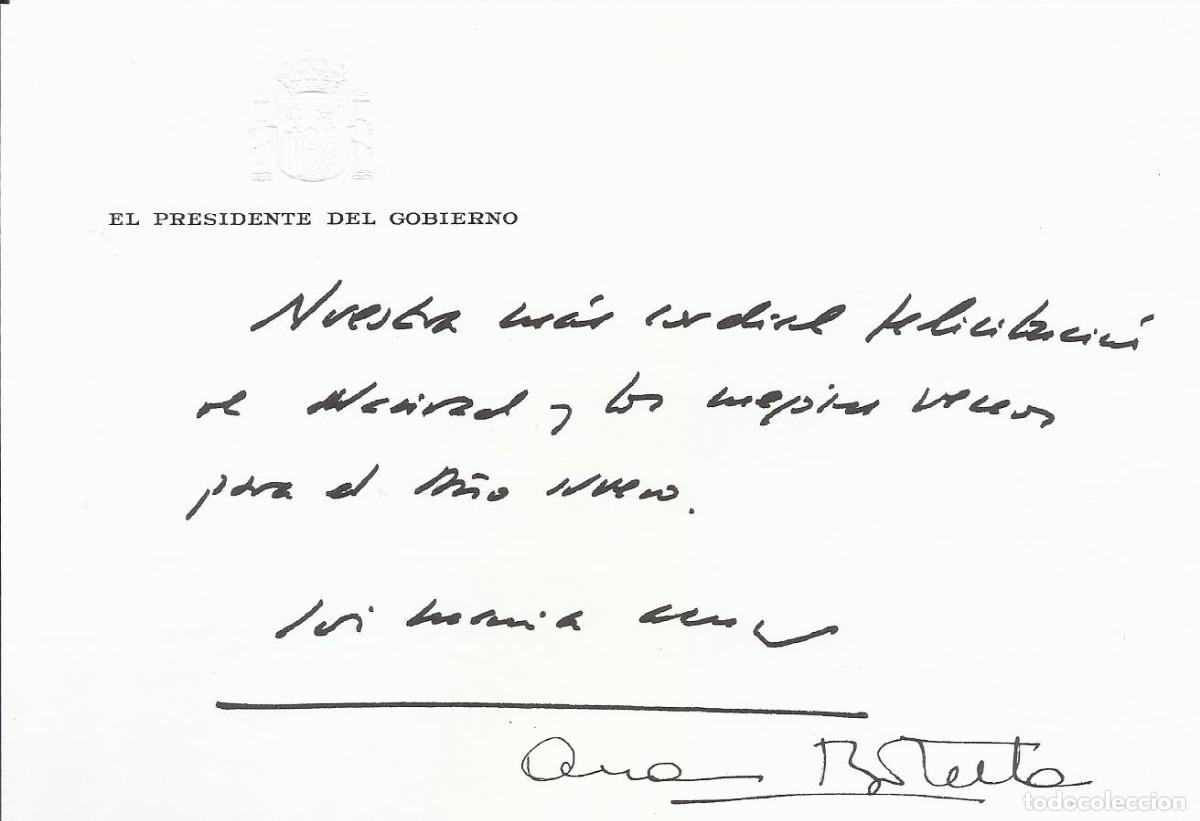 EL PRESIDENTE DEL GOBIERNO
Nuestra más cordial felicitación
de Navidad y los mejores deseos
para el Año Nuevo.
José María Aznar
Ana Botella
todocoleccion